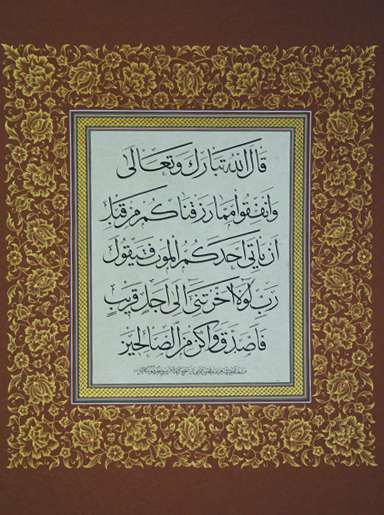 قال الله تبارك وتعالى
وانفقوا مما رزقناكم من قبل
ان ياتي احدكم الموت فيقول
رب لولا اخرتني الى اجل قريب
فاصدق واكن من الصالحين